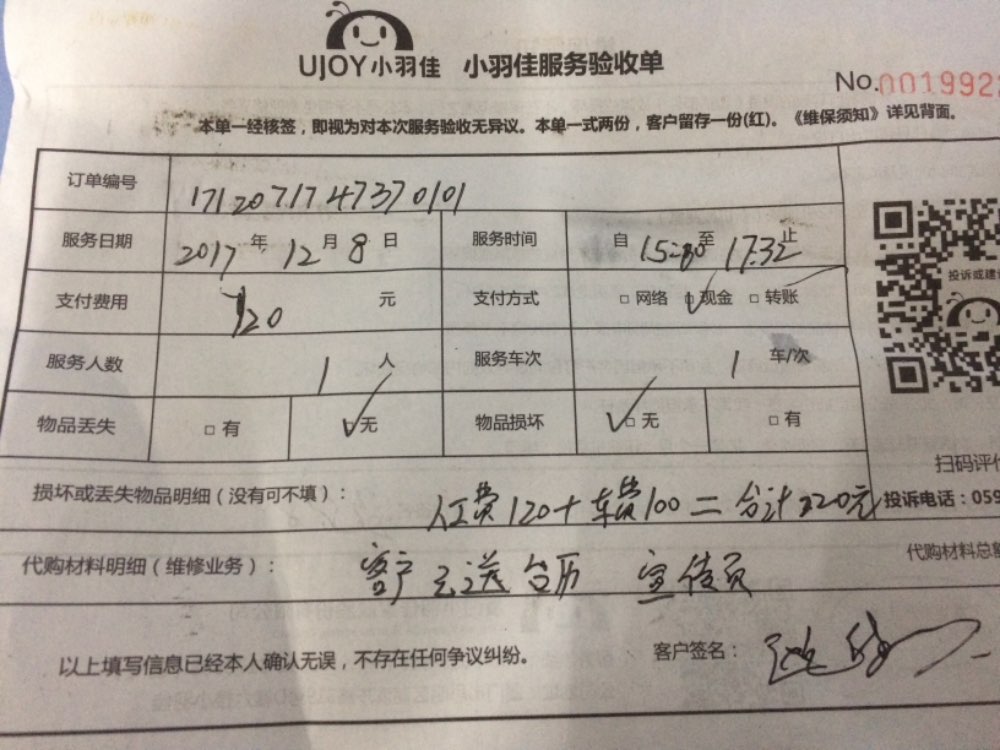 UJOY小羽佳 小羽佳服务验收单
No.001992
本单一经核签，即视为对本次服务验收无异议。本单一式两份，客户留存一份(红)。《维保须知》详见背面。
订单编号 1712071747370101
服务日期 2017年12月8日 服务时间 自15:30至17:32止
支付费用 元 支付方式 □网络 □现金 □转账
服务人数 1人 服务车次 1车/次
物品丢失 □有 □无 物品损坏 □无 □有
投诉或建议
扫码评价
损坏或丢失物品明细（没有可不填）： 人工费120+车费100=合计220元
投诉电话：059
代购材料明细（维修业务）： 客户已送台历 宣传页
代购材料总额
以上填写信息已经本人确认无误，不存在任何争议纠纷。 客户签名：